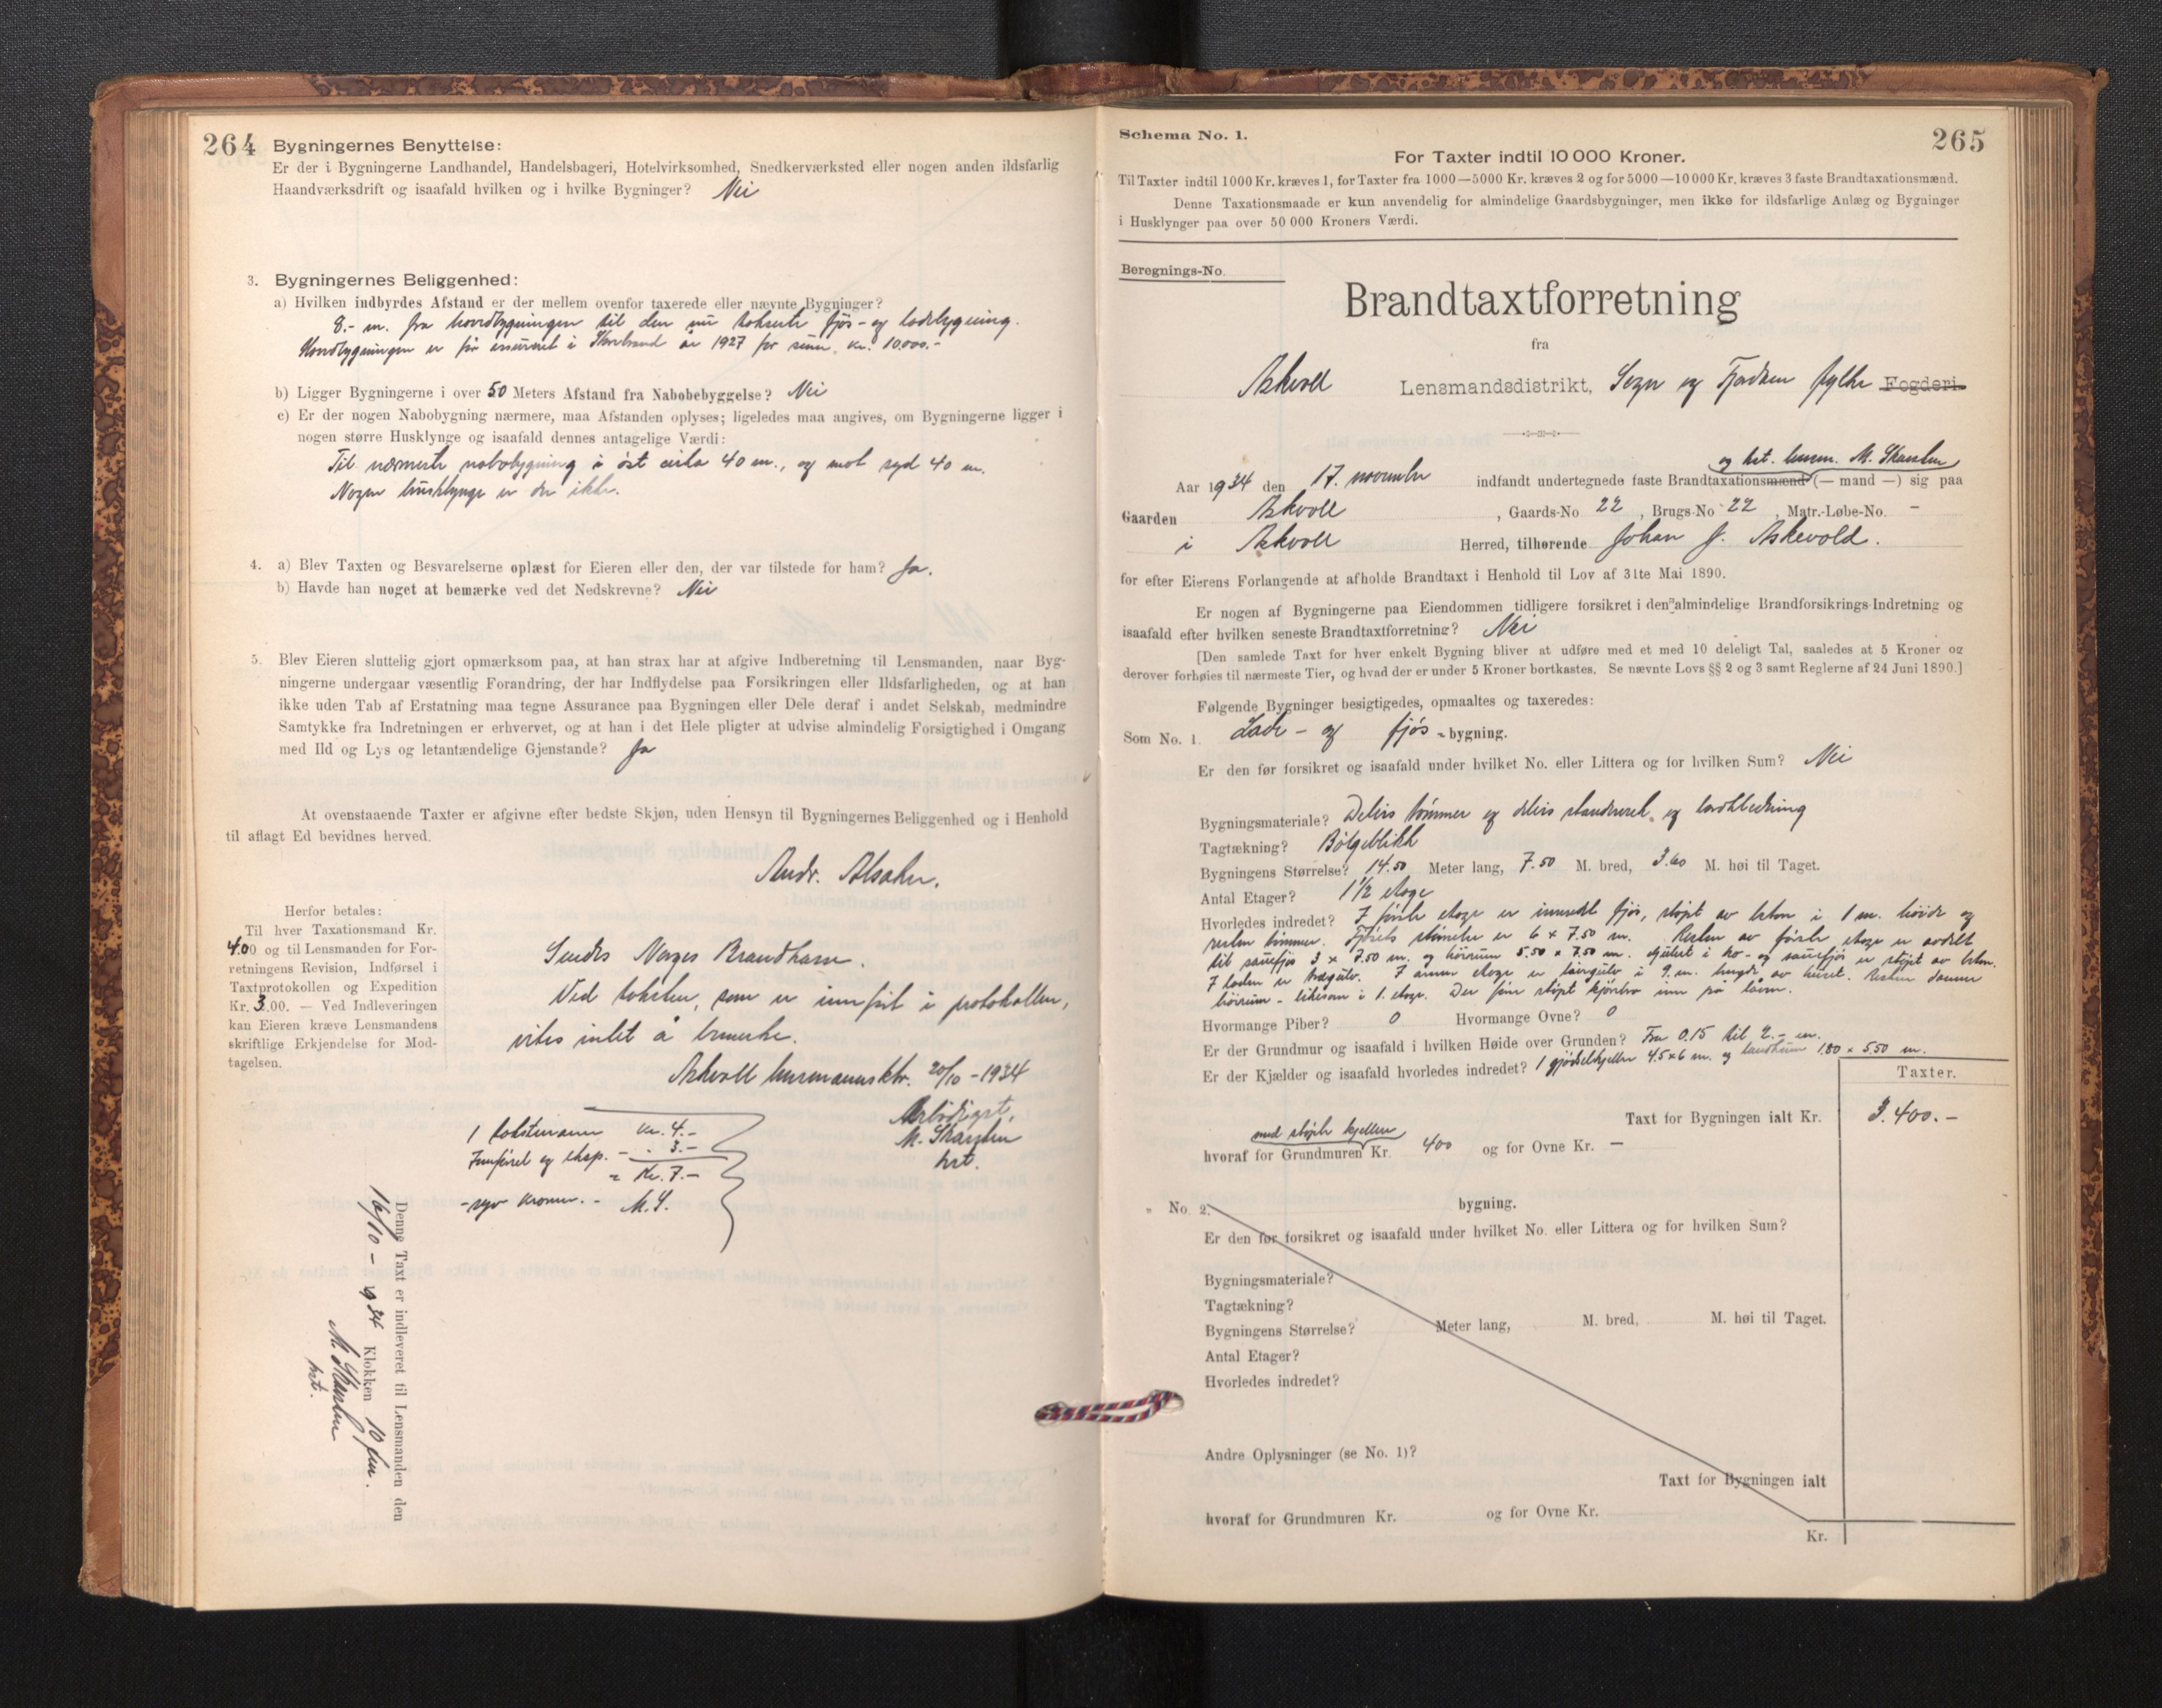 264
Bygningernes Benyttelse:
Er der i Bygningerne Landhandel, Handelsbageri, Hotelvirksomhed, Snedkerværksted eller nogen anden ildsfarlig
Haandværksdrift og isaafald hvilken og i hvilke Bygninger? Nei
3. Bygningernes Beliggenhed:
a) Hvilken indbyrdes Afstand er der mellem ovenfor taxerede eller nævnte Bygninger?
8.- m. fra hovedbygningen til den nu takserte fjøs- og ladebygning.
Hovedbygningen er før assurert i Storebrand år 1927 for sum kr. 10.000.-
b) Ligger Bygningerne i over 50 Meters Afstand fra Nabobebyggelse? Nei
c) Er der nogen Nabobygning nærmere, maa Afstanden oplyses; ligeledes maa angives, om Bygningerne ligger i
nogen større Husklynge og isaafald dennes antagelige Værdi:
Til nærmeste nabobygning i øst cirka 40 m., og mot syd 40 m.
Nogen husklynge er der ikke.
4. a) Blev Taxten og Besvarelserne oplæst for Eieren eller den, der var tilstede for ham? Ja.
b) Havde han noget at bemærke ved det Nedskrevne? Nei
5. Blev Eieren sluttelig gjort opmærksom paa, at han strax har at afgive Indberetning til Lensmanden, naar Byg-
ningerne undergaar væsentlig Forandring, der har Indflydelse paa Forsikringen eller Ildsfarligheden, og at han
ikke uden Tab af Erstatning maa tegne Assurance paa Bygningen eller Dele deraf i andet Selskab, medmindre
Samtykke fra Indretningen er erhvervet, og at han i det Hele pligter at udvise almindelig Forsigtighed i Omgang
med Ild og Lys og letantændelige Gjenstande? Ja
At ovenstaaende Taxter er afgivne efter bedste Skjøn, uden Hensyn til Bygningernes Beliggenhed og i Henhold
til aflagt Ed bevidnes herved.
Andr. Alsaker.
Herfor betales:
Til hver Taxationsmand Kr.
4.00 og til Lensmanden for For-
retningens Revision, Indførsel i
Taxtprotokollen og Expedition
Kr. 3.00. — Ved Indleveringen
kan Eieren kræve Lensmandens
skriftlige Erkjendelse for Mod-
tagelsen.
Sendes Norges Brandkasse.
Ved taksten, som er innført i protokollen,
vites intet å bemerke.
Askvoll lensmannsktr. 20/10 - 1934
Ærbødigst,
M. Skarsten
bst.
1 takstmann kr. 4.-
Innførsel og eksp. - . 3.-
= Kr. 7.-
- syv kroner. - M.S.
Denne Taxt er indleveret til Lensmanden den
16/10 - 1934 Klokken 10 fm.
M. Skarsten
bst.
Schema No. 1.
265
For Taxter indtil 10 000 Kroner.
Til Taxter indtil 1000 Kr. kræves 1, for Taxter fra 1000—5000 Kr. kræves 2 og for 5000—10 000 Kr. kræves 3 faste Brandtaxationsmænd.
Denne Taxationsmaade er kun anvendelig for almindelige Gaardsbygninger, men ikke for ildsfarlige Anlæg og Bygninger
i Husklynger paa over 50 000 Kroners Værdi.
Beregnings-No.
Brandtaxtforretning
fra
Askvoll Lensmandsdistrikt, Sogn og Fjordane fylke Fogderi.
og bst. lensm. M. Skarsten
Aar 1934 den 17. november indfandt undertegnede faste Brandtaxationsmænd (— mand —) sig paa
Gaarden Askvoll, Gaards-No 22, Brugs-No 22, Matr.-Løbe-No. -
i Askvoll Herred, tilhørende Johan J. Askevold.
for efter Eierens Forlangende at afholde Brandtaxt i Henhold til Lov af 31te Mai 1890.
Er nogen af Bygningerne paa Eiendommen tidligere forsikret i den almindelige Brandforsikrings-Indretning og
isaafald efter hvilken seneste Brandtaxtforretning? Nei
[Den samlede Taxt for hver enkelt Bygning bliver at udføre med et med 10 deleligt Tal, saaledes at 5 Kroner og
derover forhøies til nærmeste Tier, og hvad der er under 5 Kroner bortkastes. Se nævnte Lovs §§ 2 og 3 samt Reglerne af 24 Juni 1890.]
Følgende Bygninger besigtigedes, opmaaltes og taxeredes:
Som No. 1 Lade- og fjøs -bygning.
Er den før forsikret og isaafald under hvilket No. eller Littera og for hvilken Sum? Nei
Bygningsmateriale? Delvis tømmer og delvis standverk og bordkledning
Tagtækning? Bølgeblikk
Bygningens Størrelse? 14.50 Meter lang, 7.50 M. bred, 3.60 M. høi til Taget.
Antal Etager? 1 1/2 etage
Hvorledes indredet? I første etage er innredet fjøs, støpt av beton i 1 m. høide og
resten tømmer. Fjøsets størrelse er 6 x 7.50 m. Resten av første etage er avdelt
til sauefjøs 3 x 7.50 m. og høirum 5.50 x 7.50 m. Gulvet i ko- og sauefjøs er støpt av beton.
I laden er tregulv. I annen etage er låvegulv i 9. m. lengde av huset. Resten danner
høirum - likesom i 1. etage. Der fører støpt kjørebro inn på låven.
Hvormange Piber? 0 Hvormange Ovne? 0
Er der Grundmur og isaafald i hvilken Høide over Grunden? Fra 0.15 til 2.- m.
Er der Kjælder og isaafald hvorledes indredet? 1 gjødselkjeller 4.5x6 m. og landkum 1.80 x 5.50 m.
Taxter.
Taxt for Bygningen ialt Kr. 3.400.-
med støpte kjellere
hvoraf for Grundmuren Kr. 400 og for Ovne Kr. —
" No. 2. bygning.
Er den før forsikret og isaafald under hvilket No. eller Littera og for hvilken Sum?
Bygningsmateriale?
Tagtækning?
Bygningens Størrelse? Meter lang, M. bred, M. høi til Taget.
Antal Etager?
Hvorledes indredet?
Andre Oplysninger (se No. 1)?
Taxt for Bygningen ialt
hvoraf for Grundmuren Kr. og for Ovne Kr.
Kr.